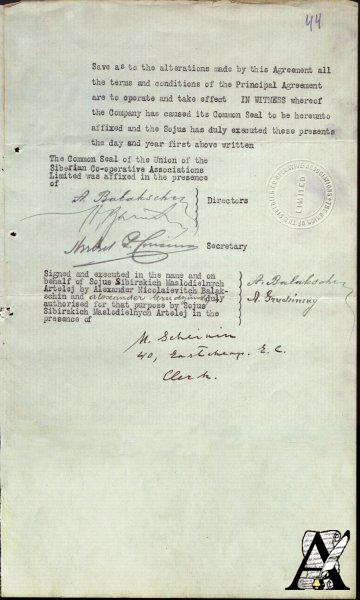 44
Save as to the alterations made by this Agreement all
the terms and conditions of the Principal Agreement
are to operate and take effect IN WITNESS whereof
the Company has caused its Common Seal to be hereunto
affixed and the Sojus has duly executed these presents
the day and year first above written
The Common Seal of the Union of the
Siberian Co-operative Associations
Limited was affixed in the presence
of
A. Balakschin
Directors
Secretary
LIMITED
Signed and executed in the name and on
behalf of Sojus Sibirskich Maslodielnych
Artelej by Alexander Nicolaievitch Balak-
schin and alexander duly
authorised for that purpose by Sojus
Sibirskich Maslodielnych Artelej in the
presence of
A. Balakschin
A.
M. Scheinin
40, Eastcheap. E. C.
Clerk.
A